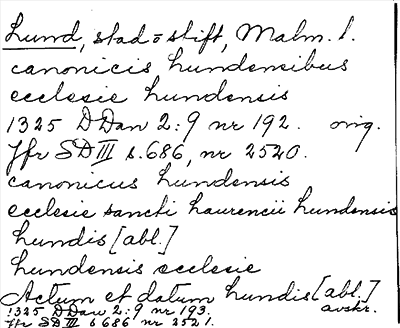 Lund, stad o stift, Malm. l.
canonicis Lundensibus
ecclesie Lundensis
1325 DDan 2:9 nr 192. orig.
Jfr SD III s. 686, nr 2520.
canonicus Lundensis
ecclesie sancti Laurencii Lundensis
Lundis [abl.]
Lundensis ecclesie
Actum et datum Lundis [abl.]
1325 DDan 2:9 nr 193. avskr.
Jfr SD III s 686 nr 2521.